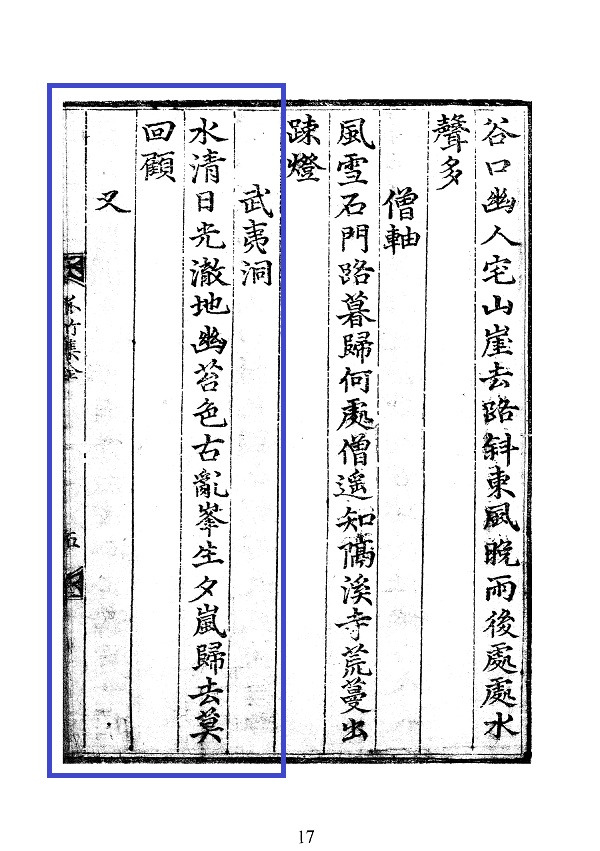 谷口幽人宅山崖去路斜東風晚雨後處處水
聲多
僧軸
風雪石門路暮歸何處僧遥知隔溪寺荒蔓出
踈燈
武夷洞
水清日光澈地幽苔色古亂峯生夕嵐歸去莫
回顧
又
竹集全
五
17